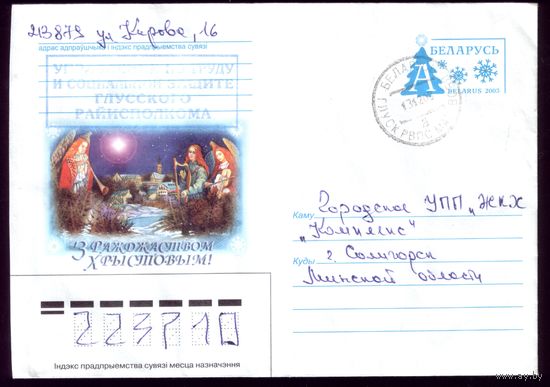 213879 ул Кирова, 16
адрас адпраўшчыка і індэкс прадпрыемства сувязі
УПРАВЛЕНИЕ ПО ТРУДУ
И СОЦИАЛЬНОЙ ЗАЩИТЕ
ГЛУССКОГО
РАЙИСПОЛКОМА
БЕЛАРУСЬ
A
BELARUS 2003
З РАЖДЖАСТВОМ
ХРЫСТОВЫМ!
Каму Городское УПП „ЖКХ
„Комплекс"
Куды г. Солигорск
Минской области
223710
Індэкс прадпрыемства сувязі месца назначэння
www.ay.by